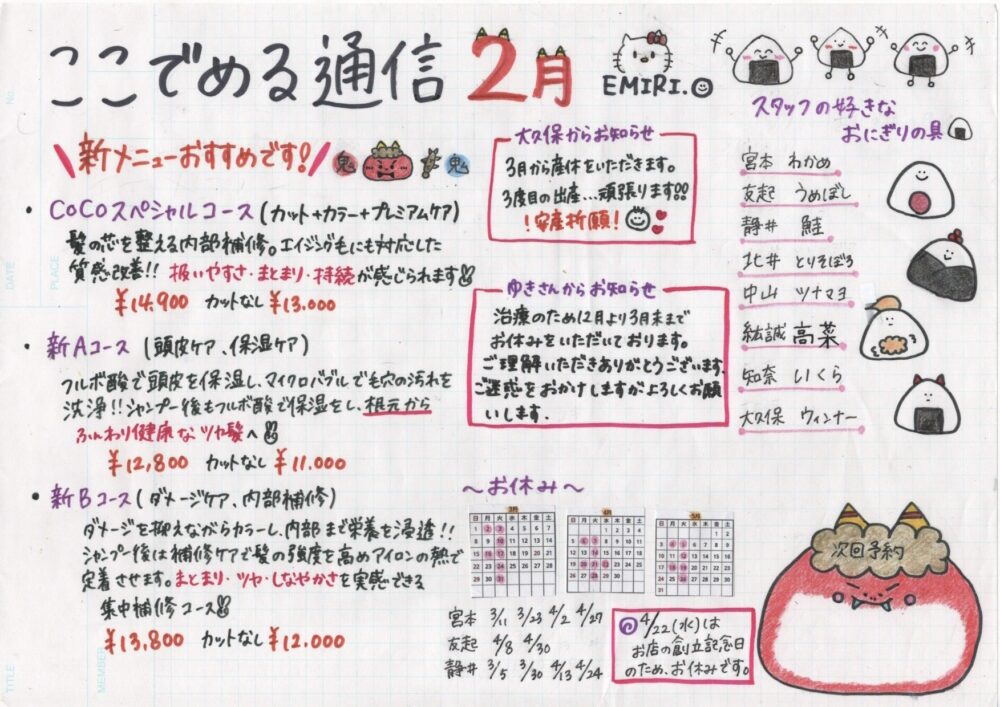 ここでめる通信 2月
EMIRI.
\新メニューおすすめです!/ 鬼 鬼
・COCOスペシャルコース(カット+カラー+プレミアムケア)
髪の芯を整える内部補修。エイジング毛にも対応した
質感改善!! 扱いやすさ・まとまり・持続が感じられます
¥14,900 カットなし ¥13,000
・新Aコース (頭皮ケア、保湿ケア)
フルボ酸で頭皮を保湿し、マイクロバブルで毛穴の汚れを
洗浄!!シャンプー後もフルボ酸で保湿をし、根元から
ふんわり健康なツヤ髪へ
¥12,800 カットなし ¥11,000
・新Bコース(ダメージケア、内部補修)
ダメージを抑えながらカラーし、内部まで栄養を浸透!!
シャンプー後は補修ケアで髪の強度を高めアイロンの熱で
定着させます。まとまり・ツヤ・しなやかさを実感できる
集中補修コース
¥13,800 カットなし ¥12,000
大久保からお知らせ
3月から産休をいただきます。
3度目の出産...頑張ります!!
!安産祈願!
ゆきさんからお知らせ
治療のため12月より3月末まで
お休みをいただいております。
ご理解いただきありがとうございます。
ご迷惑をおかけしますがよろしくお願
いします.
スタッフの好きな
おにぎりの具
宮本 わかめ
友起 うめぼし
静井 鮭
北井 とりそぼろ
中山 ツナマヨ
結誠 高菜
知奈 いくら
大久保 ウィンナー
〜お休み〜
3月
4月
5月
日 月 火 水 木 金 土
宮本 3/11 3/23 4/2 4/27
友起 4/8 4/30
静井 3/5 3/30 4/13 4/24
4/22(水)は
お店の創立記念日
のため、お休みです。
次回予約
No.
DATE
PLACE
TITLE
MEMBER